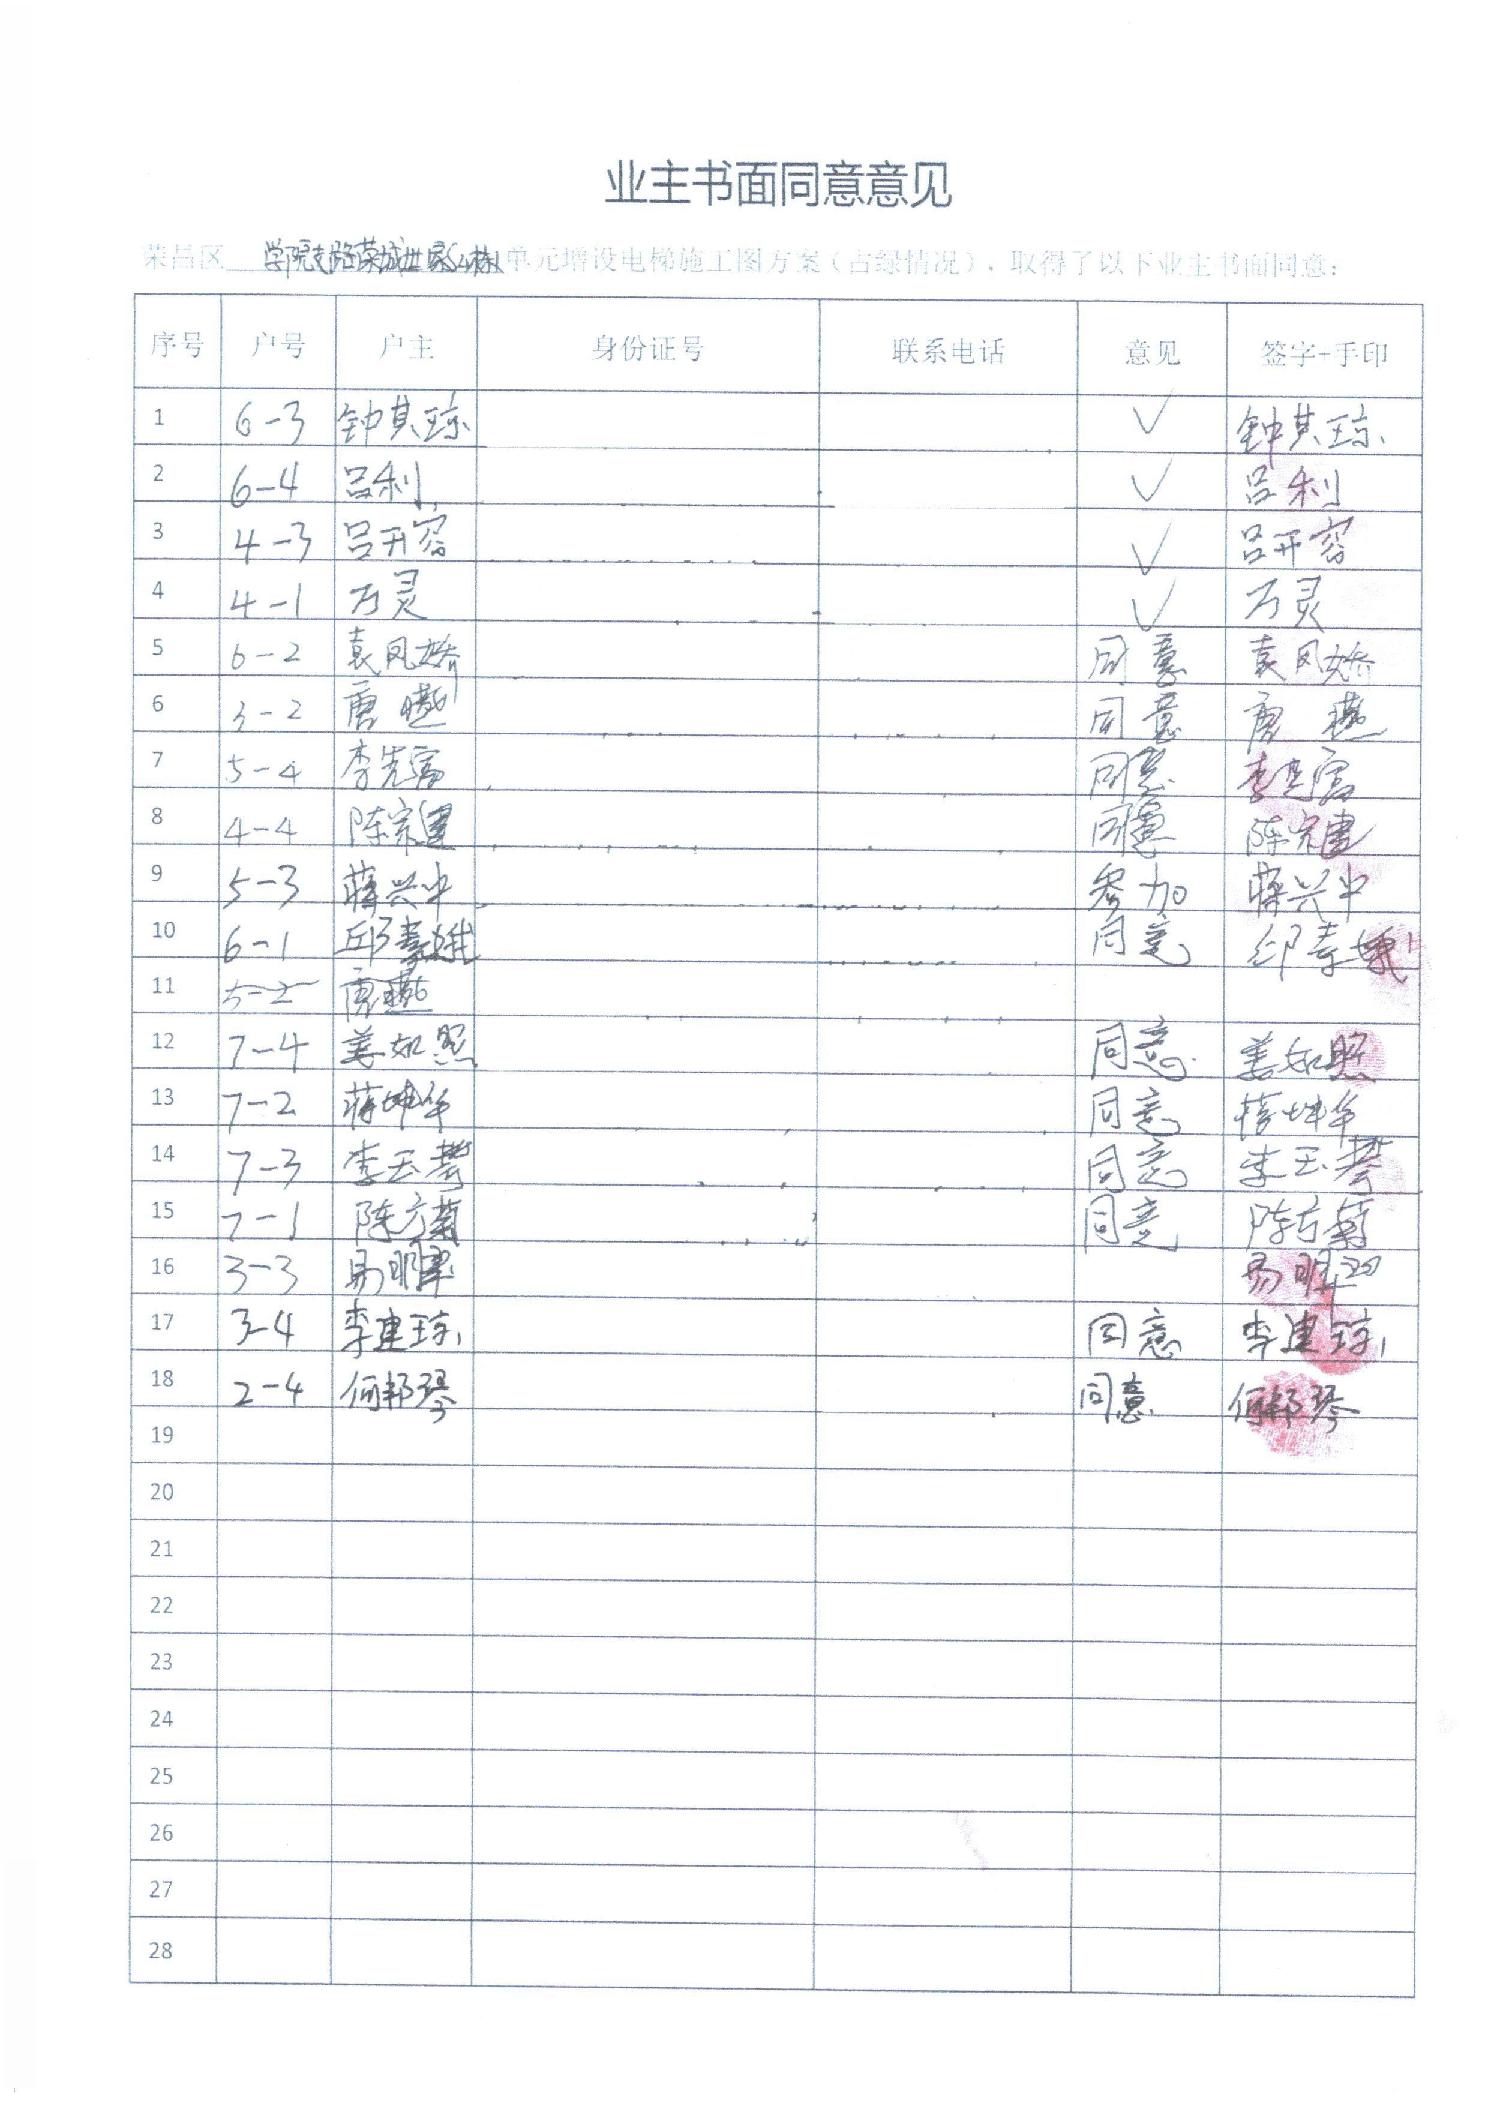 业主书面同意意见
荣昌区 学院支路荣城世家 单元增设电梯施工图方案(占绿情况),取得了以下业主书面同意:
序号 户号 户主 身份证号 联系电话 意见 签字+手印
1 6-3 钟其琼 ✓ 钟其琼
2 6-4 吕利 ✓ 吕利
3 4-3 吕开容 ✓ 吕开容
4 4-1 万灵 ✓ 万灵
5 6-2 袁凤娇 同意 袁凤娇
6 3-2 唐燕 同意 唐燕
7 5-4 李先富 同意 李先富
8 4-4 陈宗建 同意 陈宗建
9 5-3 蒋兴中 参加 蒋兴中
10 6-1 邱素娥 同意 邱素娥
11 5-2 唐燕
12 7-4 姜如照 同意 姜如照
13 7-2 蒋坤华 同意 蒋坤华
14 7-3 李玉琴 同意 李玉琴
15 7-1 陈方菊 同意 陈方菊
16 3-3 易明翠 易明翠
17 3-4 李建琼 同意 李建琼
18 2-4 何邦琴 同意 何邦琴
19
20
21
22
23
24
25
26
27
28